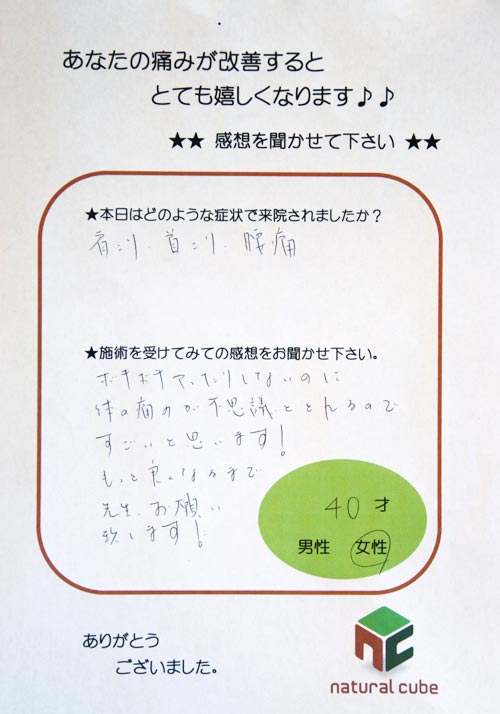 あなたの痛みが改善すると
とても嬉しくなります♪♪
★★ 感想を聞かせて下さい ★★
★本日はどのような症状で来院されましたか？
肩こり、首こり、腰痛
★施術を受けてみての感想をお聞かせ下さい。
ボキボキやったりしないのに
体の痛みが不思議ととれるので
すごいと思います！
もっと良くなるまで
先生、お願い
致します！
40 才
男性 女性
ありがとう
ございました。
natural cube